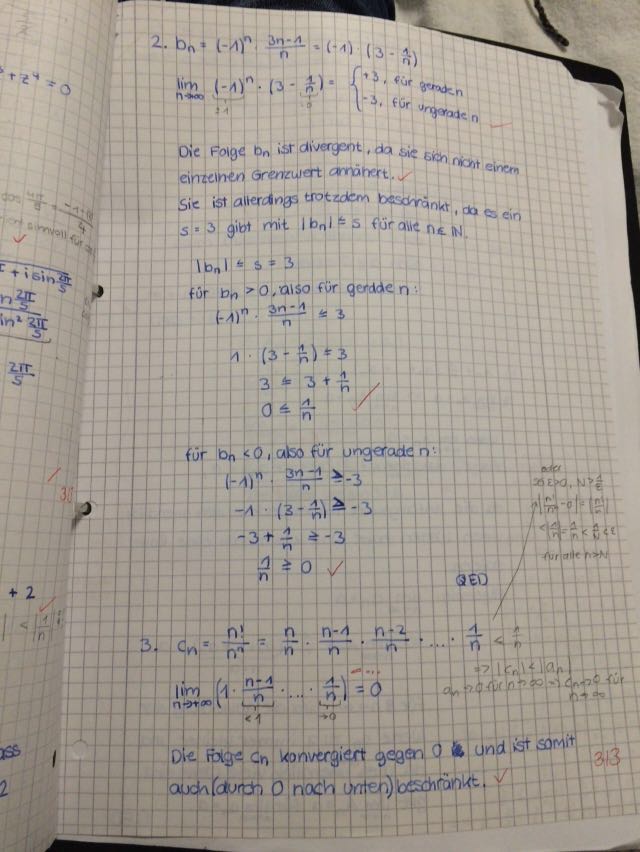 2. bₙ = (-1)ⁿ · (3n-1)/n = (-1) · (3 - 1/n)
lim n→∞ (-1)ⁿ · (3 - 1/n) = { +3, für gerade n
-3, für ungerade n
Die Folge bₙ ist divergent, da sie sich nicht einem
einzelnen Grenzwert annähert.
Sie ist allerdings trotzdem beschränkt, da es ein
s = 3 gibt mit |bₙ| ≤ s für alle n ∈ ℕ.
|bₙ| ≤ s = 3
für bₙ > 0, also für gerade n:
(-1)ⁿ · (3n-1)/n ≤ 3
1 · (3 - 1/n) ≤ 3
3 ≤ 3 + 1/n
0 ≤ 1/n
für bₙ < 0, also für ungerade n:
(-1)ⁿ · (3n-1)/n ≥ -3
-1 · (3 - 1/n) ≥ -3
-3 + 1/n ≥ -3
1/n ≥ 0
QED
oder
für alle n>N
3. cₙ = n!/nⁿ = n/n · (n-1)/n · (n-2)/n · .... · 1/n < 1/n
⇒ |cₙ| < |aₙ|
aₙ→0 für n→∞ ⇒ cₙ→0 für
n→∞
lim n→+∞ (1 · (n-1)/n · .... · 1/n) = 0
<1 →0
Die Folge cₙ konvergiert gegen 0 und ist somit
auch (durch 0 nach unten) beschränkt.
3/3
+ z⁴ = 0
+ i sin 2π/5
2π/5
+ 2